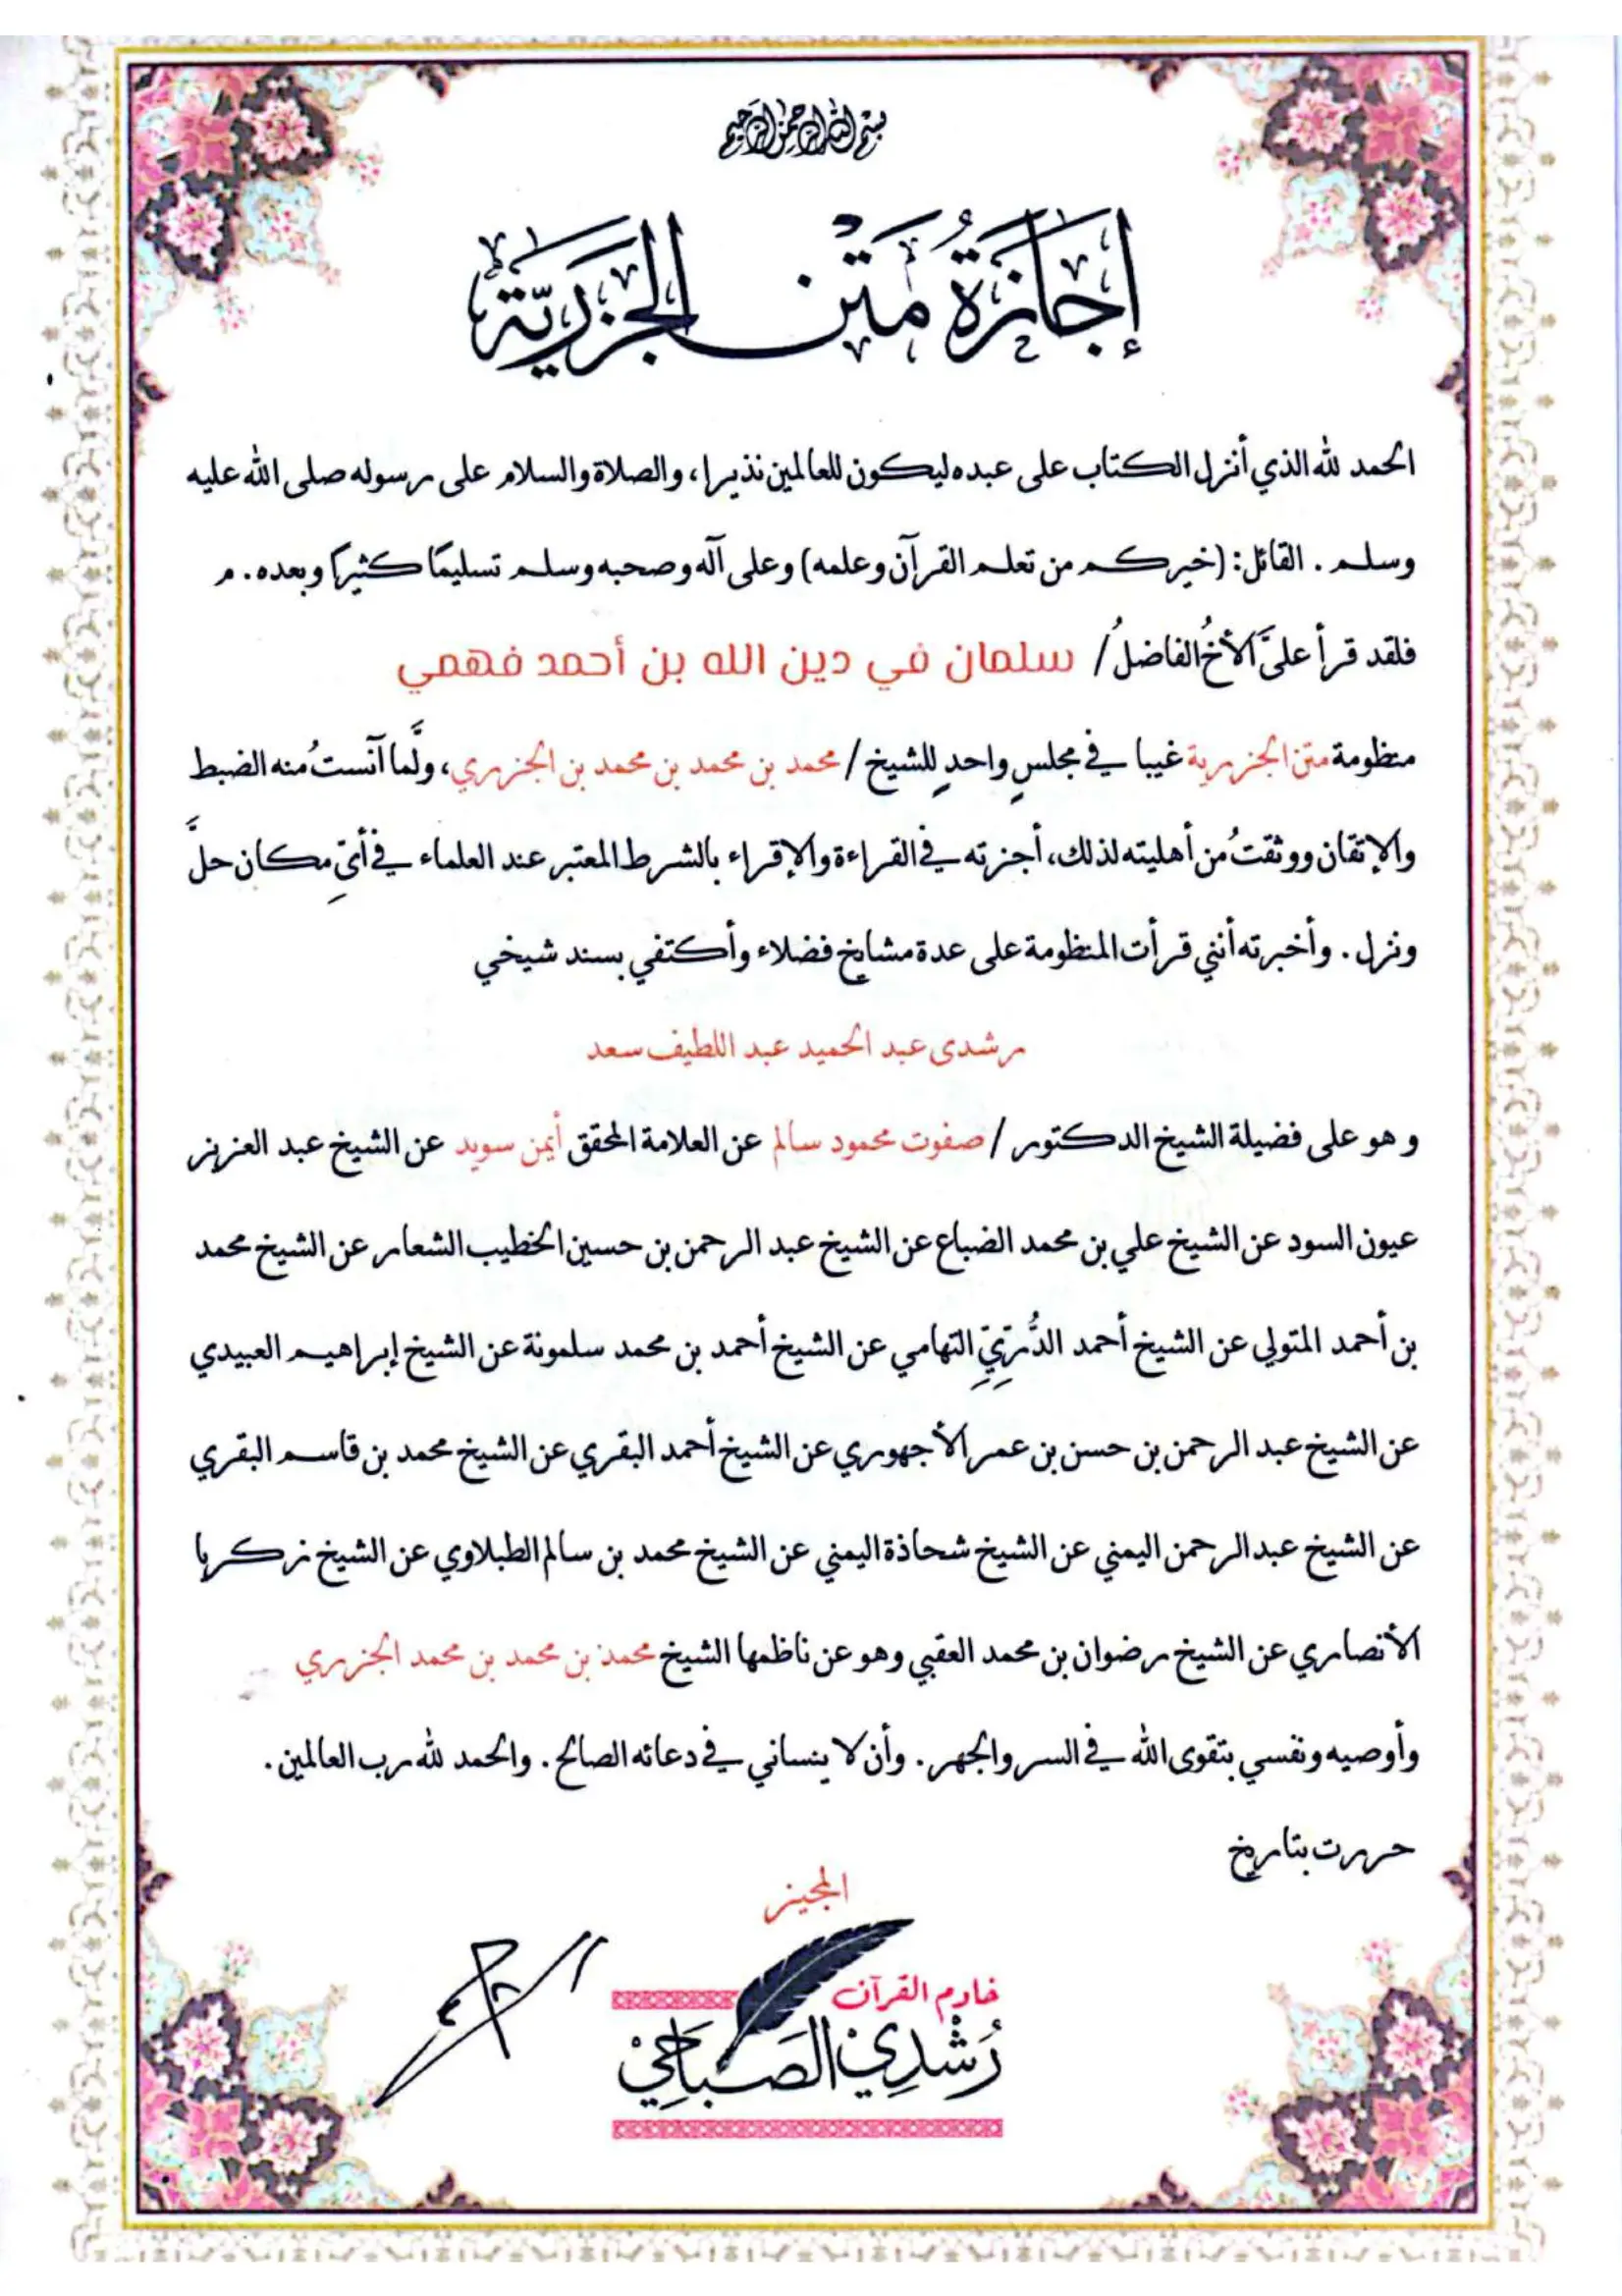 بسم الله الرحمن الرحيم
إِجَازَةُ مَتْن الجَزَرِيَّة
الحمد لله الذي أنزل الكتاب على عبده ليكون للعالمين نذيرا، والصلاة والسلام على رسوله صلى الله عليه
وسلم . القائل: (خيركم من تعلم القرآن وعلمه) وعلى آله وصحبه وسلم تسليمًا كثيرًا وبعده. م
فلقد قرأ عليَّ الأخُ الفاضلُ/ سلمان في دين الله بن أحمد فهمي
منظومة متن الجزرية غيبا في مجلسٍ واحدٍ للشيخ / محمد بن محمد بن محمد بن الجزري، ولَّما آنستُ منه الضبط
والإتقان ووثقتُ من أهليته لذلك، أجزته في القراءة والإقراء بالشرط المعتبر عند العلماء في أيِّ مكان حلَّ
ونزل . وأخبرته أنني قرأت المنظومة على عدة مشايخ فضلاء وأكتفي بسند شيخي
رشدى عبد الحميد عبد اللطيف سعد
و هو على فضيلة الشيخ الدكتور / صفوت محمود سالم عن العلامة المحقق أيمن سويد عن الشيخ عبد العزيز
عيون السود عن الشيخ علي بن محمد الضباع عن الشيخ عبد الرحمن بن حسين الخطيب الشعار عن الشيخ محمد
بن أحمد المتولي عن الشيخ أحمد الدُّرِّيِّ التهامي عن الشيخ أحمد بن محمد سلمونة عن الشيخ إبراهيم العبيدي
عن الشيخ عبد الرحمن بن حسن بن عمر الأجهوري عن الشيخ أحمد البقري عن الشيخ محمد بن قاسم البقري
عن الشيخ عبد الرحمن اليمني عن الشيخ شحاذة اليمني عن الشيخ محمد بن سالم الطبلاوي عن الشيخ زكريا
الأنصاري عن الشيخ رضوان بن محمد العقبي وهو عن ناظمها الشيخ محمد بن محمد بن محمد الجزري
وأوصيه ونفسي بتقوى الله في السر والجهر. وأن لا ينساني في دعائه الصالح. والحمد لله رب العالمين.
حررت بتاريخ
المجيز
خادم القرآن
رُشْدِي الصَبَاحِيْ